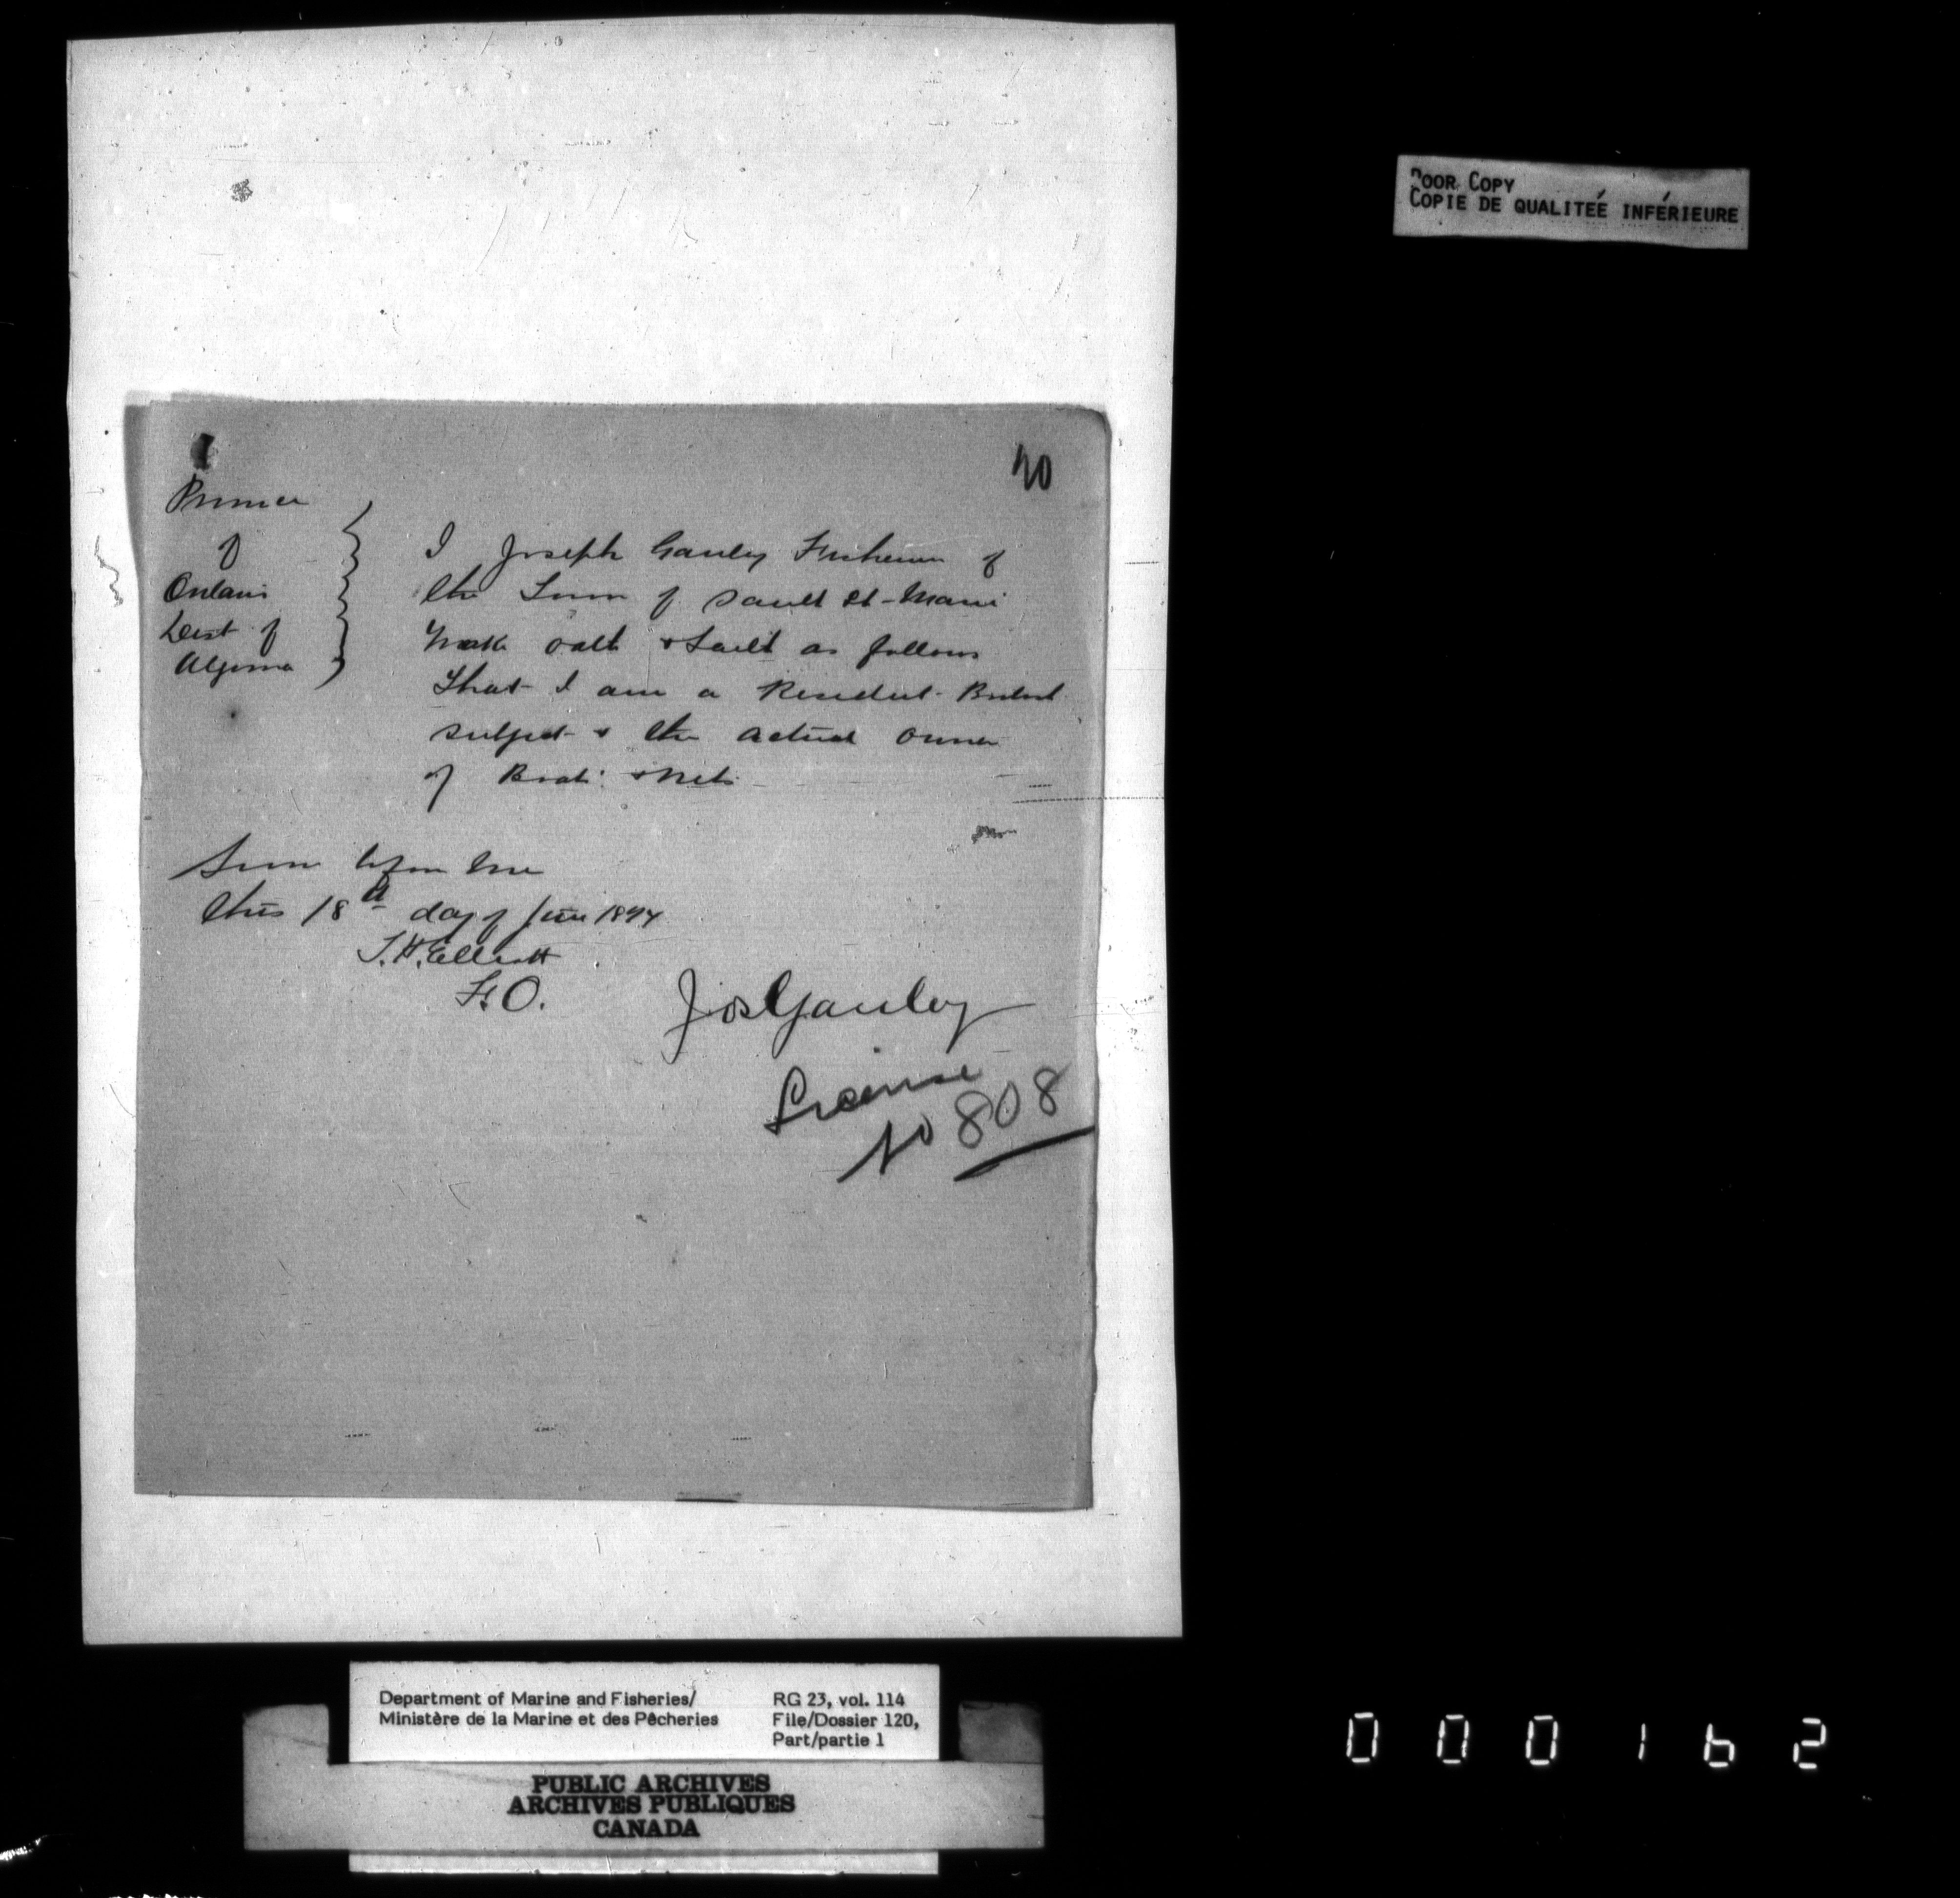 POOR COPY
COPIE DE QUALITEÉ INFÉRIEURE
40
Province
of
Ontario
Dist of
Algoma
I Joseph Ganley Fisherman of
the Town of Sault St-Marie
Make oath & saith as follows
That I am a Resident British
subject & the actual owner
of Boats & Nets
Sworn before me
this 18th day of June 1894
T.H. Elliott
F.O.
Jos Ganley
License
No 808
Department of Marine and Fisheries/
Ministère de la Marine et des Pêcheries
RG 23, vol. 114
File/Dossier 120,
Part/partie 1
PUBLIC ARCHIVES
ARCHIVES PUBLIQUES
CANADA
000162